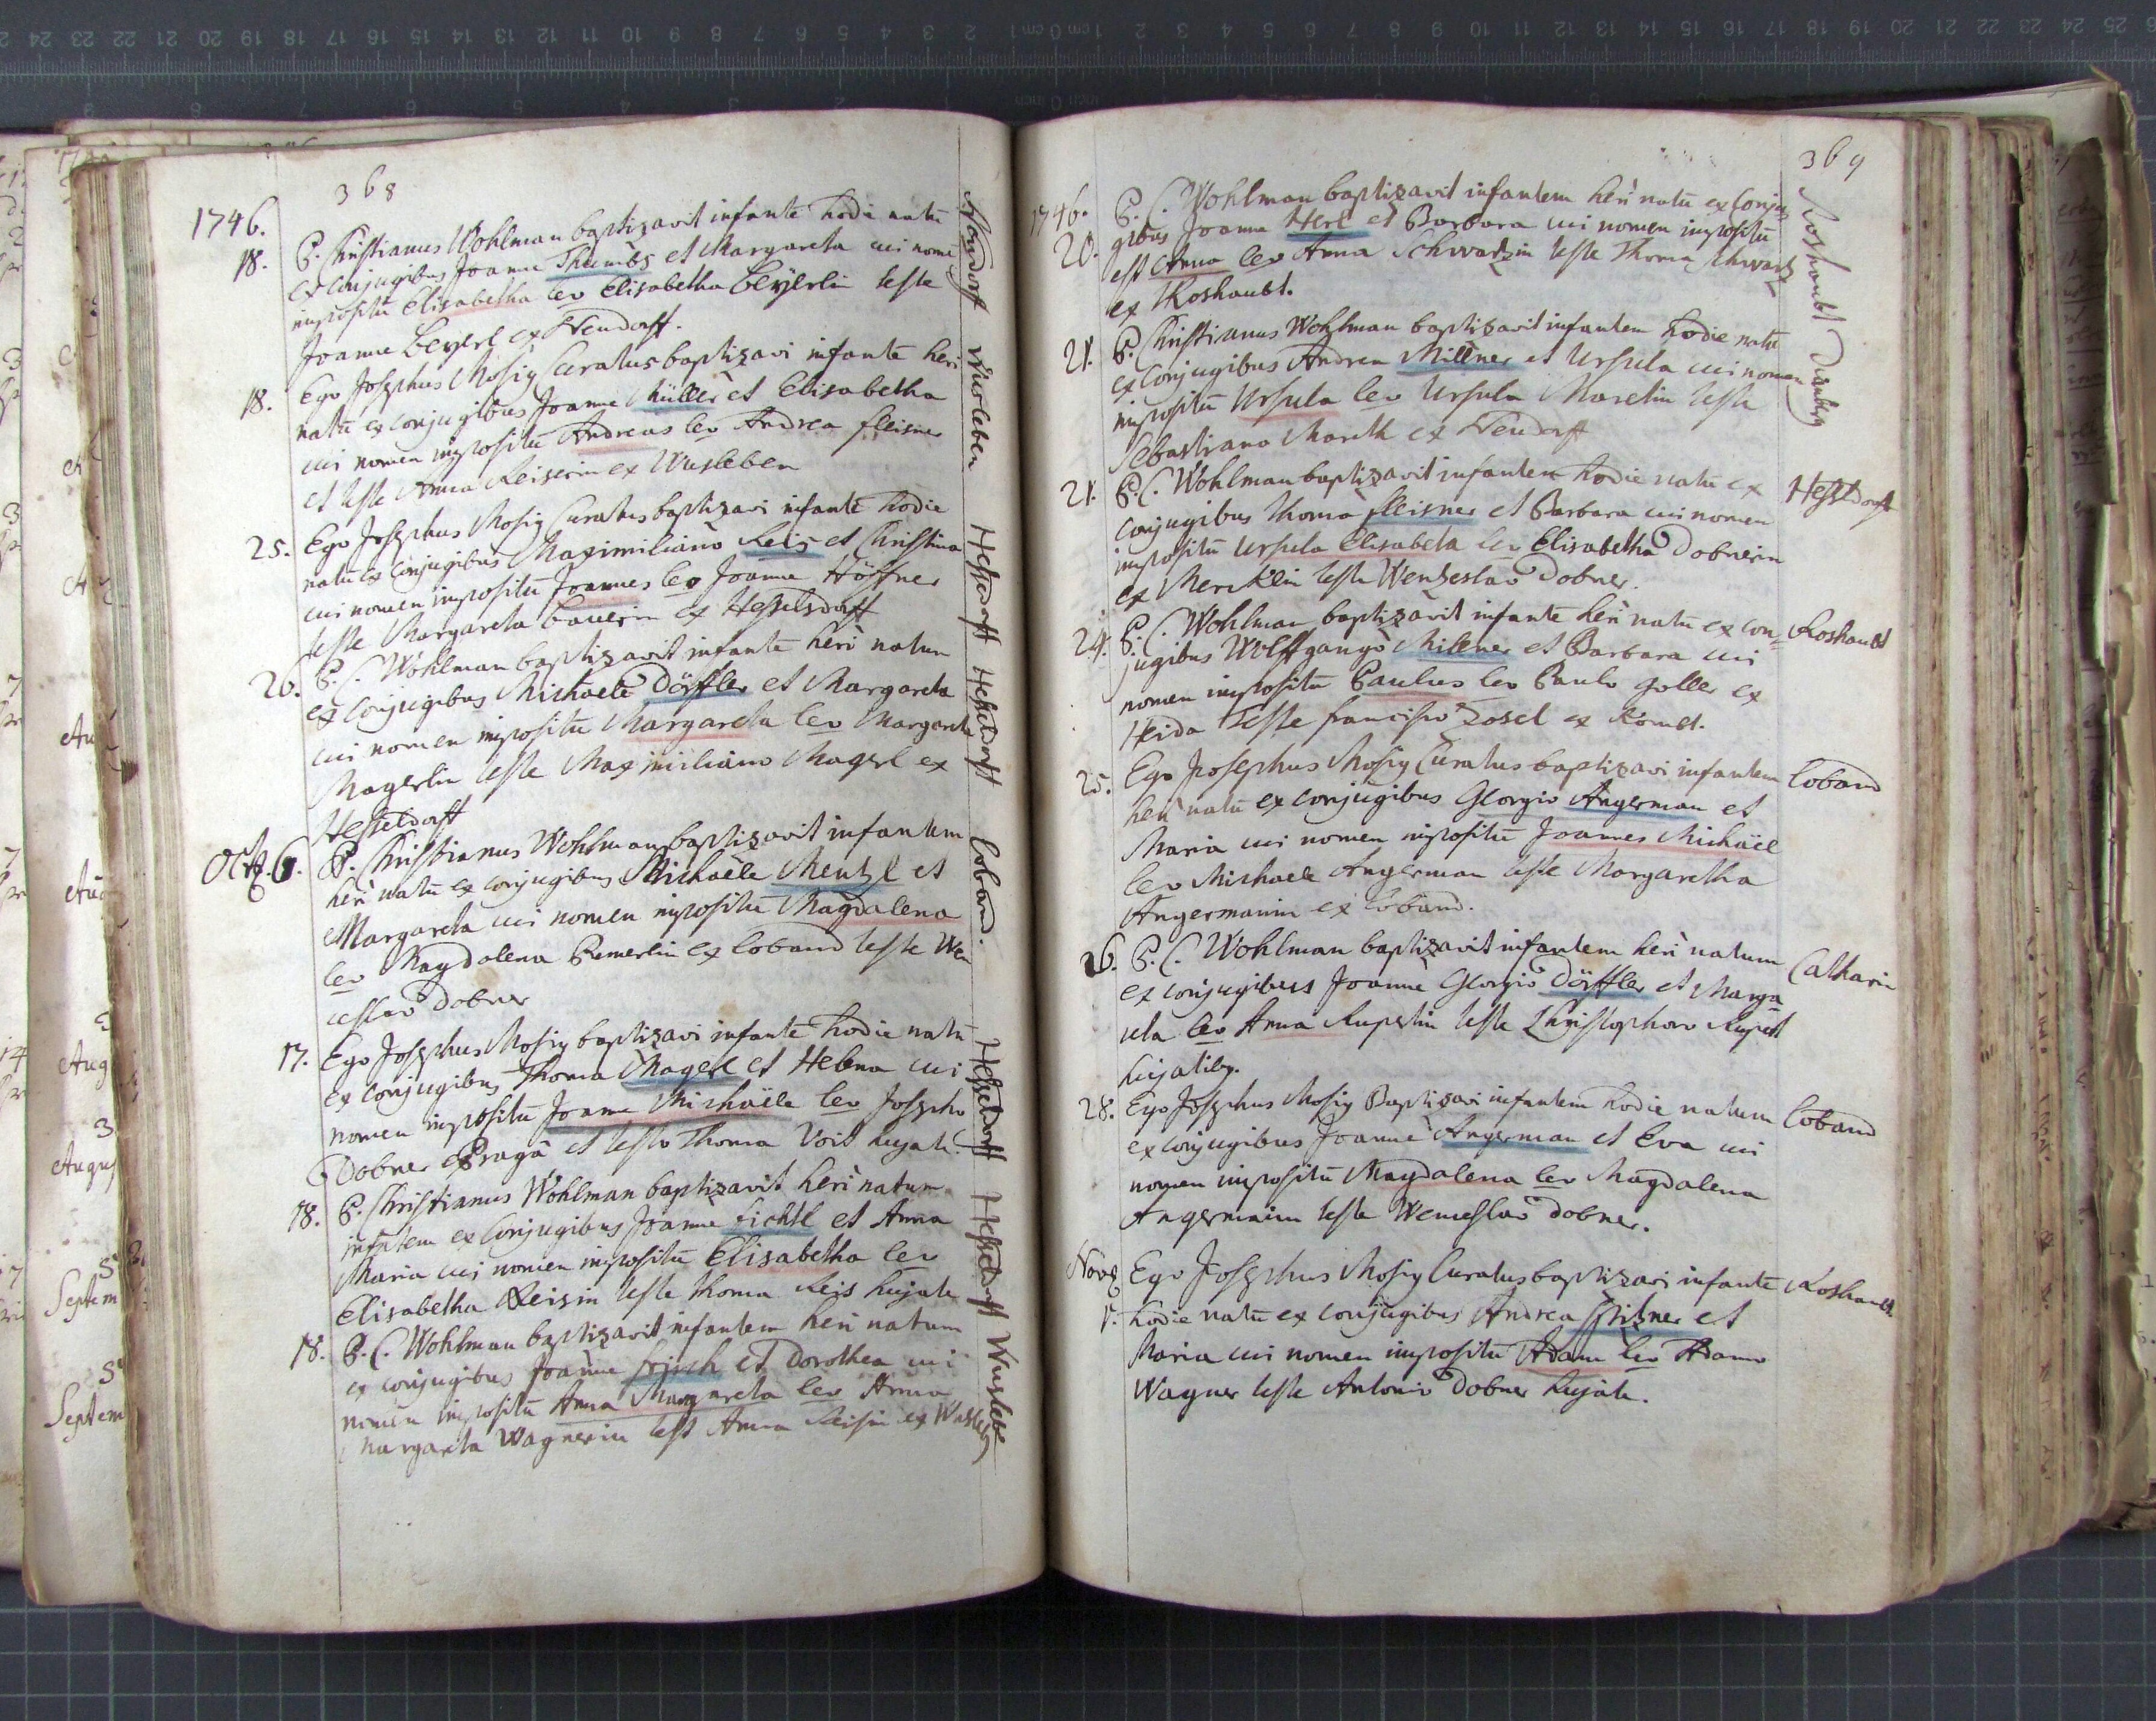 368
1746.
18. P. Christianus Wohlman baptizavit infantē hodie natū
ex conjugibus Joanne Thumbs et Margareta cui nomē
impositū Elisabetha lev Elisabetha Beÿerlin teste
Joanne Beyerl ex Neudorff.
Neudorff
18. Ego Josephus Mosig Curatus baptizavi infantē heri
natū ex conjugibus Joanne Müller et Elisabetha
cui nomen impositū Andreas lev Andrea fleisner
et teste Anna Reiserin ex Wusleben
Wusleben
25. Ego Josephus Mosig Curatus baptizavi infantē hodie
natū ex conjugibus Maximiliano Reis et Christina
cui nomen impositū Joannes lev Joanne Höffner
teste Margareta baverin ex Hesselsdorff
Hesseldorff
26. P. C. Wohlman baptizavit infantē heri natum
ex conjugibus Michaele Dörffler et Margareta
cui nomen impositū Margareta lev Margareta
Magerlin teste Maximiliano Magerl ex
Hesseldorff
Hesseldorff
Octb. 6. P. Christianus Wohlman baptizavit infantem
heri natū ex conjugibus Michaële Mentzl et
Margareta cui nomen impositū Magdalena
lev Magdalena Bemerlin ex Coband teste Wen
ceslao Dobner
Coband.
17. Ego Josephus Mosig baptizavi infantē hodie natū
ex conjugibus Thoma Magerl et Helena cui
nomen impositū Joanne Michaële lev Josepho
Dobner ex Pragâ et teste Thoma Voit hujate.
Hesseldorff
18. P. Christianus Wohlman baptizavit heri natum
infantem ex conjugibus Joanne Lichtl et Anna
Maria cui nomen impositū Elisabetha lev
Elisabetha Reisin teste Thoma Reis hujate
Hesseldorff
18. P. C. Wohlman baptizavit infantem heri natum
ex conjugibus Joanne frisch et Dorothea cui
nomen impositū Anna Margareta lev Anna
Margareta Wagnerin test Anna Reisin ex Wusleben
Wusleben
369
1746.
20. P. C. Wohlman baptizavit infantem heri natū ex conju
gibus Joanne Herl et Barbara cui nomen impositū
est Anna lev Anna Schwartzin teste Thoma Schwartz
ex Roshaubt.
Roshaubt
21. P. Christianus Wohlman baptizavit infantem hodie natū
ex conjugibus Andrea Millner et Ursula cui nomen
impositū Ursula lev Ursula Maretin teste
Sebastiano Mareth ex Neudorff
21. P. C. Wohlman baptizavit infantem hodie natū ex
conjugibus Thoma fleisner et Barbara cui nomen
impositū Ursula Elisabeta lev Elisabetha Dobnerin
ex Mercklin teste Wentzeslao Dobner.
Hesseldorff
24. P. C. Wohlman baptizavit infantē heri natū ex con=
jugibus Wolffgango Millner et Barbara cui
nomen impositū Paulus lev Paulo goller ex
Heida Teste francisco Zosel ex
Roshaubt
25. Ego Josephus Mosig Curatus baptizavi infantem
heri natū ex conjugibus Georgio Angerman et
Maria cui nomen impositū Joannes Michaël
lev Michaele Angerman teste Margaretha
Angermanin ex Coband.
Coband
26. P. C. Wohlman baptizavit infantem heri natum
ex conjugibus Joanne Georgio Dörffler et Marga
reta lev Anna Rupertin teste Christophoro Rupert
hujatiby.
Catharin
28. Ego Josephus Mosig Baptizavi infantem hodie natum
ex conjugibus Joanne Angerman et Eva cui
nomen impositū Magdalena lev Magdalena
Angermanin teste Wenceslao Dobner.
Coband
Novb
1. Ego Josephus Mosig Curatus baptizavi infantē
hodie natū ex conjugibus Andrea et
Maria cui nomen impositū Adam lev Adamo
Wagner teste Antonio Dobner hujate.
Roshaubt